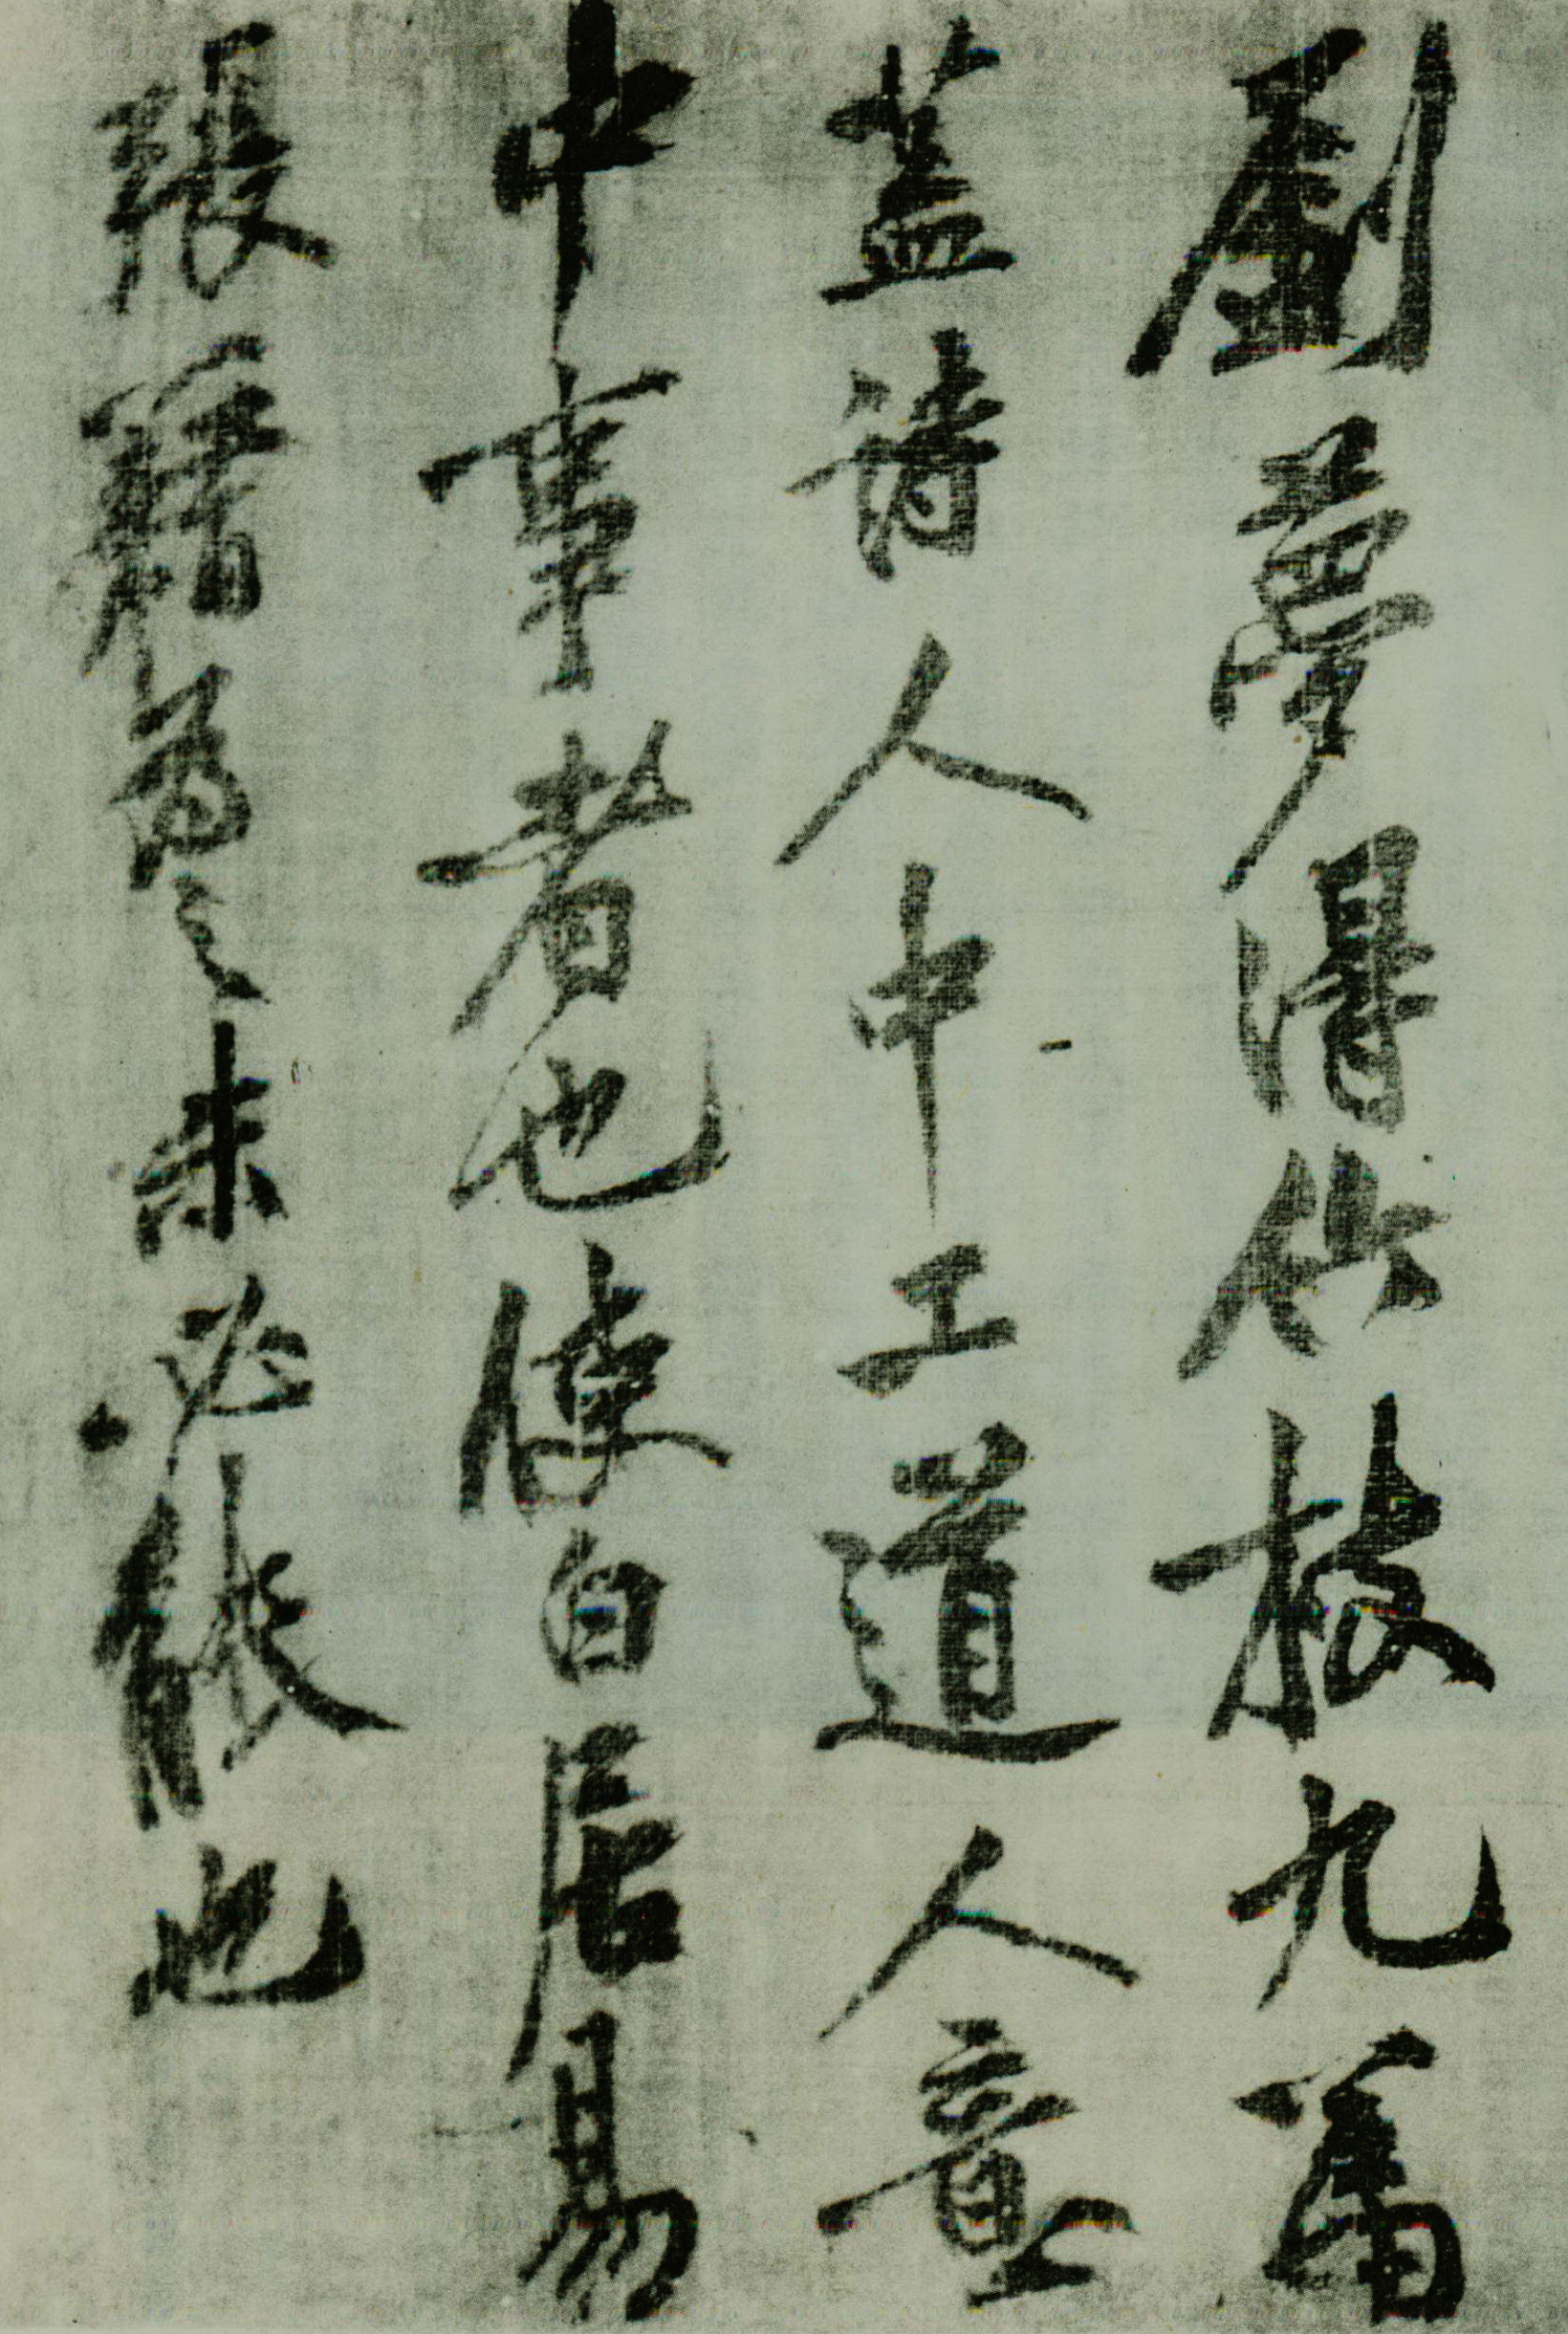 劉夢得竹枝九篇
蓋詩人中工道人意
中事者也使白居易
張籍為之未必能也